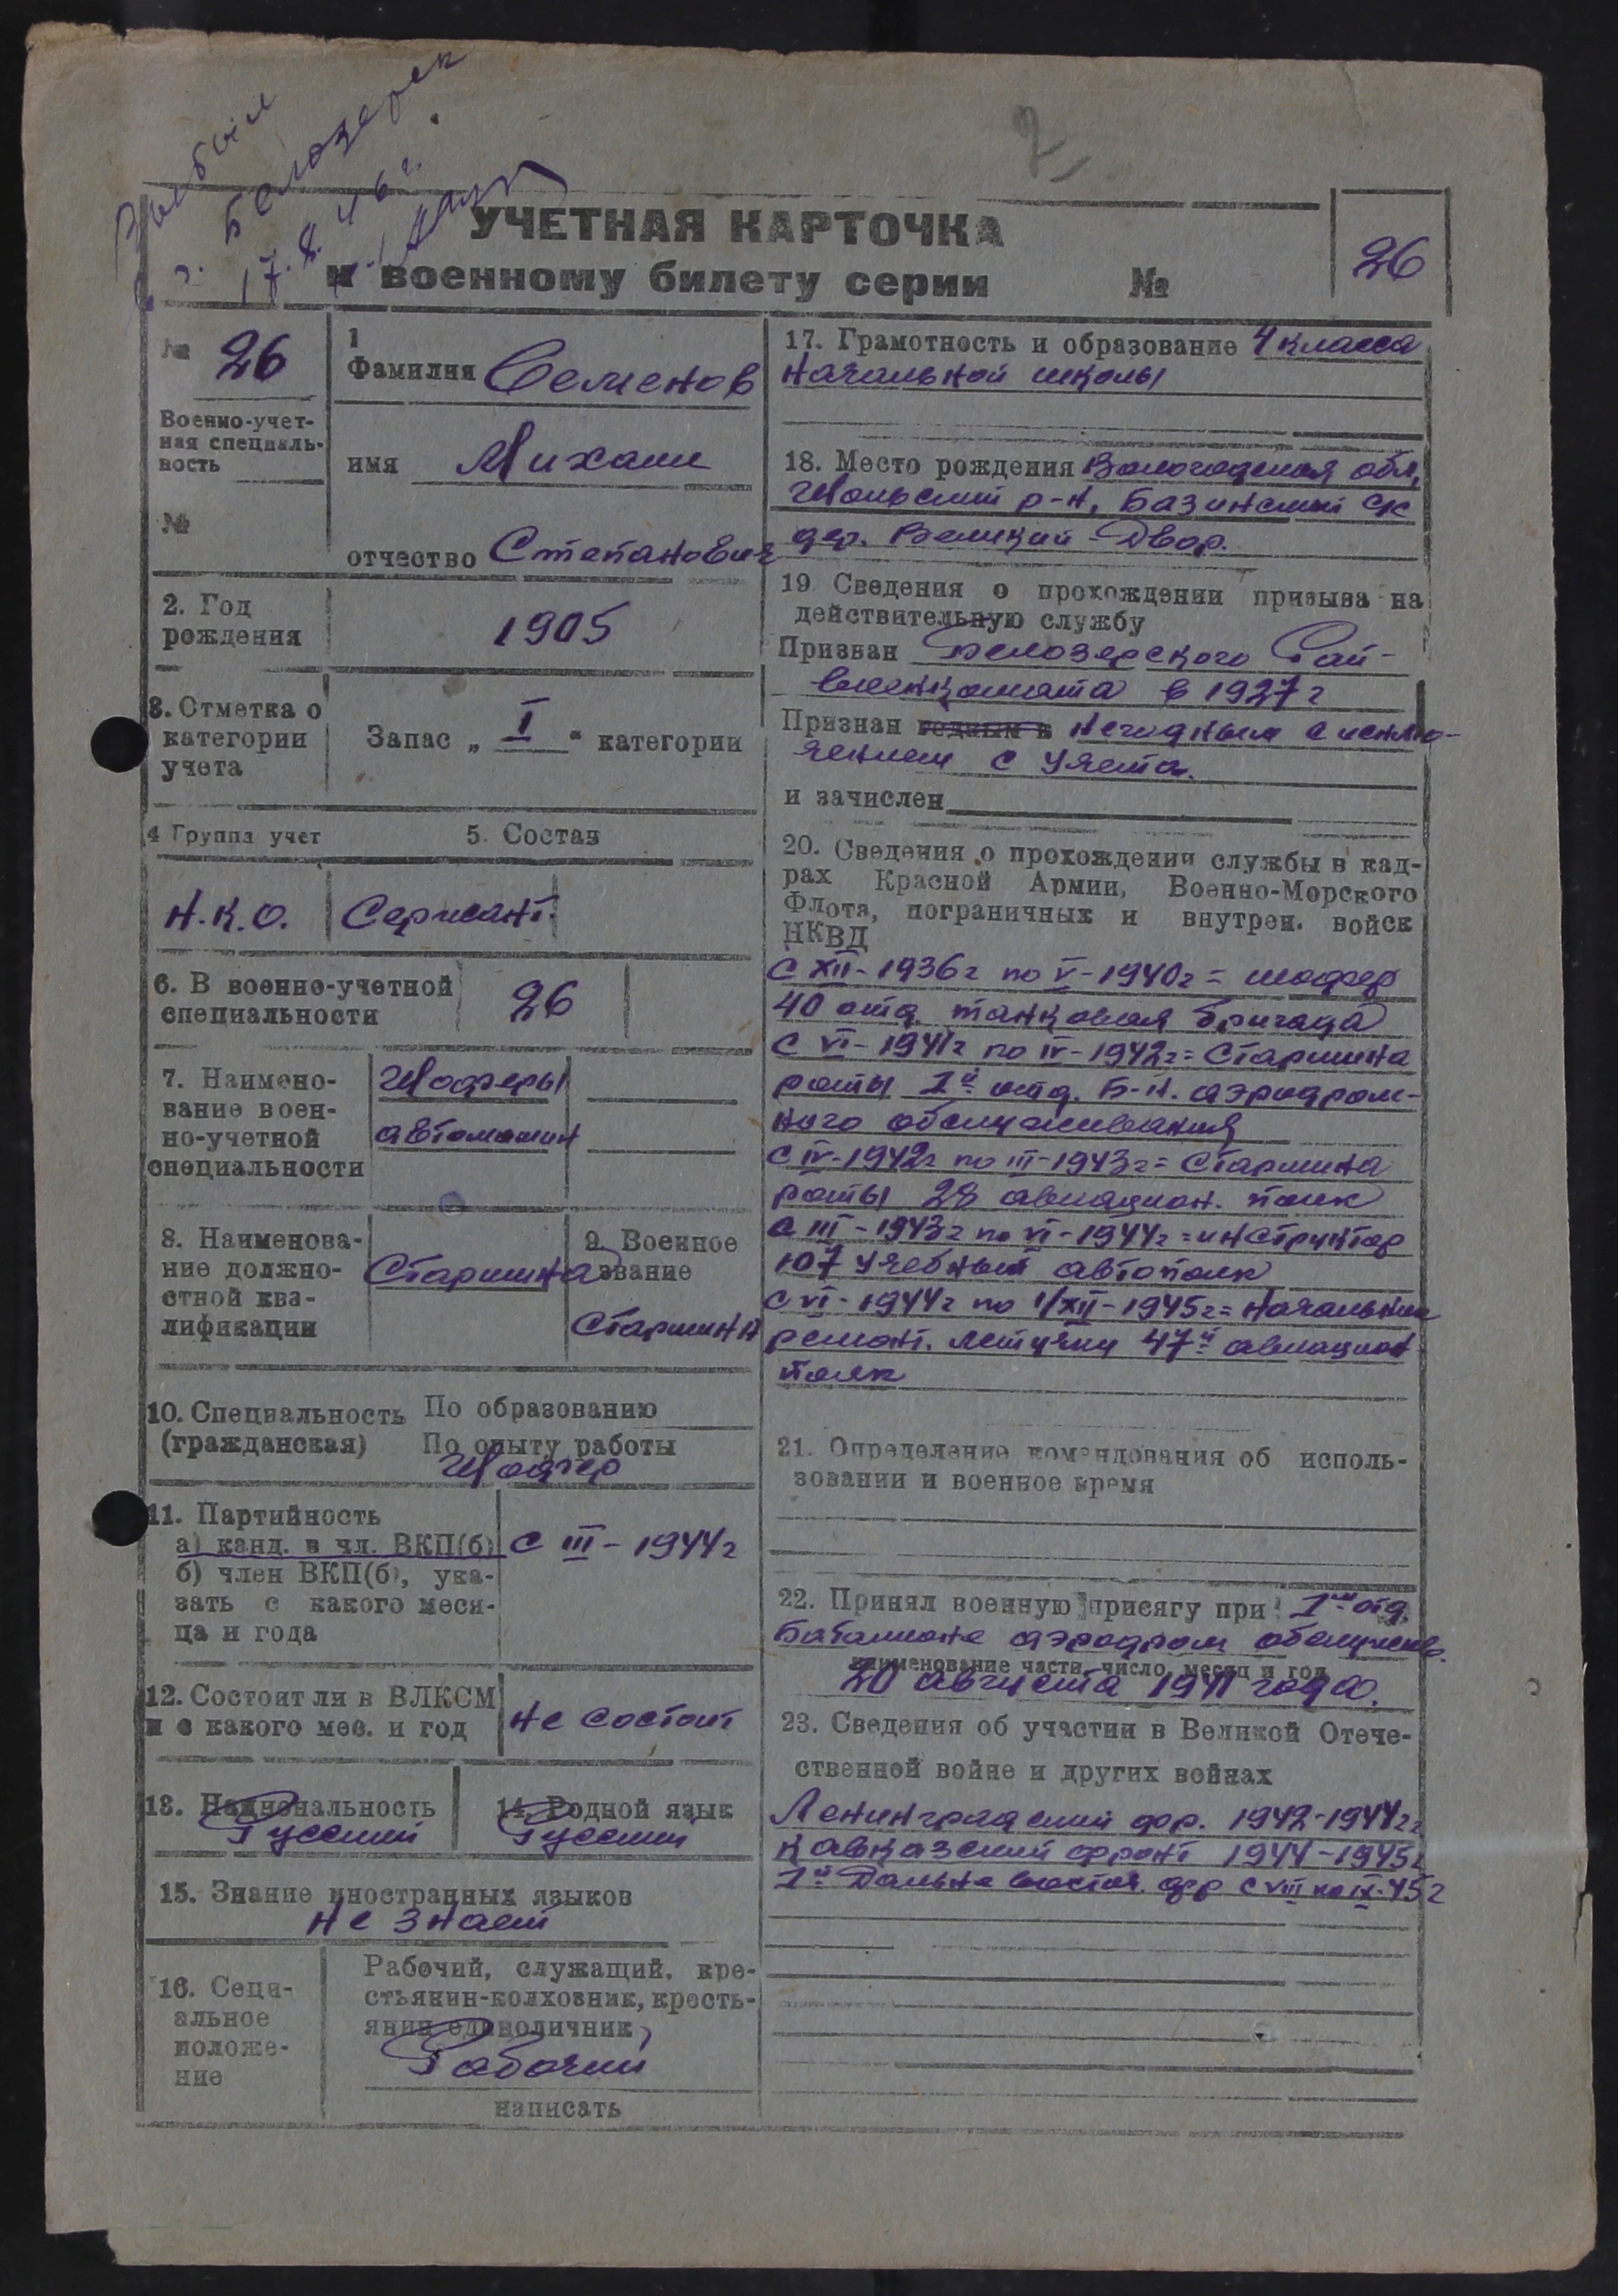 Выбыл
в г. Белозерск
17.8.46 г.
2
УЧЕТНАЯ КАРТОЧКА
к военному билету серии №
26
№ 26
Военно-учет-
ная специаль-
ность
№
1
Фамилия Семенов
имя Михаил
отчество Степанович
2. Год
рождения
1905
3. Отметка о
категории
учета
Запас „ I “ категории
4 Группа учет
5. Состав
Н.К.О.
Сержант.
6. В военно-учетной
специальности
26
7. Наимено-
вание воен-
но-учетной
специальности
Шоферы
автомашин
8. Наименова-
ние должно-
стной ква-
лификации
Старшина
9. Военное
звание
Старшина
10. Специальность
(гражданская)
По образованию
По опыту работы
Шофер
11. Партийность
а) канд. в чл. ВКП(б)
б) член ВКП(б), ука-
зать с какого меся-
ца и года
с III - 1944г
12. Состоит ли в ВЛКСМ
и с какого мес. и год
не состоит
13. Национальность
Русский
14. Родной язык
Русский
15. Знание иностранных языков
не знает
16. Соци-
альное
положе-
ние
Рабочий, служащий, кре-
стьянин-колхозник, кресть-
янин единоличник
Рабочий
написать
17. Грамотность и образование 4 класса
начальной школы
18. Место рождения Вологодская обл,
Шольский р-н, Базинский с/с
дер. Великий-Двор.
19 Сведения о прохождении призыва на
действительную службу
Призван Белозерского Рай-
военкомата в 1927г
Признан годным к негодным с исклю-
чением с учета.
и зачислен
20. Сведения о прохождении службы в кад-
рах Красной Армии, Военно-Морского
Флота, пограничных и внутрен. войск
НКВД
с XII-1936г по V-1940г = шофер
40 отд. танковая бригада
с VI-1941г по IV-1942г = Старшина
роты 1й отд. Б-н. аэродром-
ного обслуживания
с IV-1942г по III-1943г = Старшина
роты 28 авиацион. полк
с III-1943г по VI-1944г = инструктор
107 учебный автополк
с VI-1944г по 1/XII-1945г = Начальник
ремонт. летучки 47й авиацион
полк
21. Определение командования об исполь-
зовании и военное время
22. Принял военную присягу при 1ом отд.
батальоне аэродром обслужив.
наименование части, число, месяц и год
20 августа 1941 года.
23. Сведения об участии в Великой Отече-
ственной войне и других войнах
Ленинградский фр. 1942-1944гг
Кавказский фронт 1944-1945г
1й Дальне восточ. фр с VIII по IX-45г